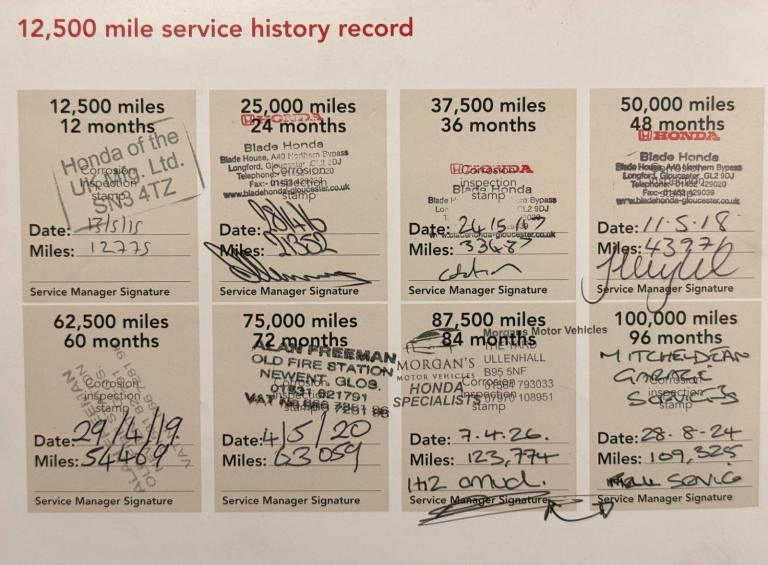 12,500 mile service history record
12,500 miles
12 months
Honda of the
UK Mfg. Ltd.
SN3 4TZ
Corrosion
inspection
stamp
Date: 13/5/15
Miles: 12775
Service Manager Signature
25,000 miles
24 months
HONDA
Blade Honda
Blade House, A40 Northern Bypass
Longford, Gloucester, GL2 9DJ
Telephone:
Fax:
www.bladehonda-gloucester.co.uk
Corrosion
inspection
stamp
Date:
Miles:
Service Manager Signature
37,500 miles
36 months
HONDA
Blade Honda
Corrosion
inspection
stamp
Date: 24/5/17
Miles: 33487
Service Manager Signature
50,000 miles
48 months
HONDA
Blade Honda
Blade House, A40 Northern Bypass
Longford, Gloucester, GL2 9DJ
Telephone: 01452 429020
www.bladehonda-gloucester.co.uk
Date: 11.5.18
Miles: 43976
Service Manager Signature
62,500 miles
60 months
Corrosion
inspection
stamp
Date: 29/4/19
Miles: 54469
Service Manager Signature
75,000 miles
72 months
ALAN FREEMAN
OLD FIRE STATION
NEWENT, GLOS.
01531 821791
VAT No
Corrosion
inspection
stamp
Date: 4/5/20
Miles: 63059
Service Manager Signature
87,500 miles
84 months
Morgans Motor Vehicles
THE YARD
ULLENHALL
B95 5NF
01564 793033
07970 108951
MORGAN'S
MOTOR VEHICLES
HONDA
SPECIALISTS
Corrosion
inspection
stamp
Date: 7.4.26.
Miles: 123,774
Service Manager Signature
100,000 miles
96 months
MITCHELDEAN
GARAGE
SERVICES
Corrosion
inspection
stamp
Date: 28-8-24
Miles: 109,325
Full Service
Service Manager Signature